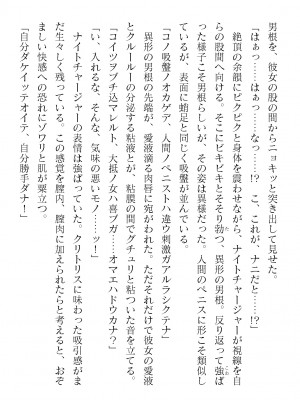 男根を、彼女の股の間にニョキッと突き出して見せた。
「はぁっ……はぁっ……な……!?　こ、これが、ナニだと……!?」
　絶頂の余韻にピクピクと身体を震わせながら、ナイトチャージャーが視線を自
らの股間へ向ける。そこにビキビキとそそり勃つ、異形の男根。反り返って強ば
った様子こそ男根らしいが、その姿は異様だった。人間のペニスに形こそ類似し
ているが、表面に蛇足と同じく吸盤が並んでいた。
「コノ吸盤ノオカゲデ、人間ノペニストハ違ウ刺激ガアルラシクテナ」
　異形の男根の先端が、愛液滴る肉唇に宛がわれた。ただそれだけで彼女の愛液
とクルールーの分泌する粘液とが、粘膜の間でグチュリと粘ついた音を立てる。
「コイツヲブチ込マルト、大抵ノ女ハ喜ブガ……オマエハドウカナ？」
「い、入れるな、そんな、気味の悪いモノ……ッ！」
　ナイトチャージャーの表情は強ばっていた。クリトリスに味わった吸引感がま
だ生々しく残っている。この感覚を膣内、膣肉に加えられたらと考えると、おぞ
ましい快感への恐れにゾワリと肌が粟立つ。
「自分ダケイッテオイテ、自分勝手ダナー」